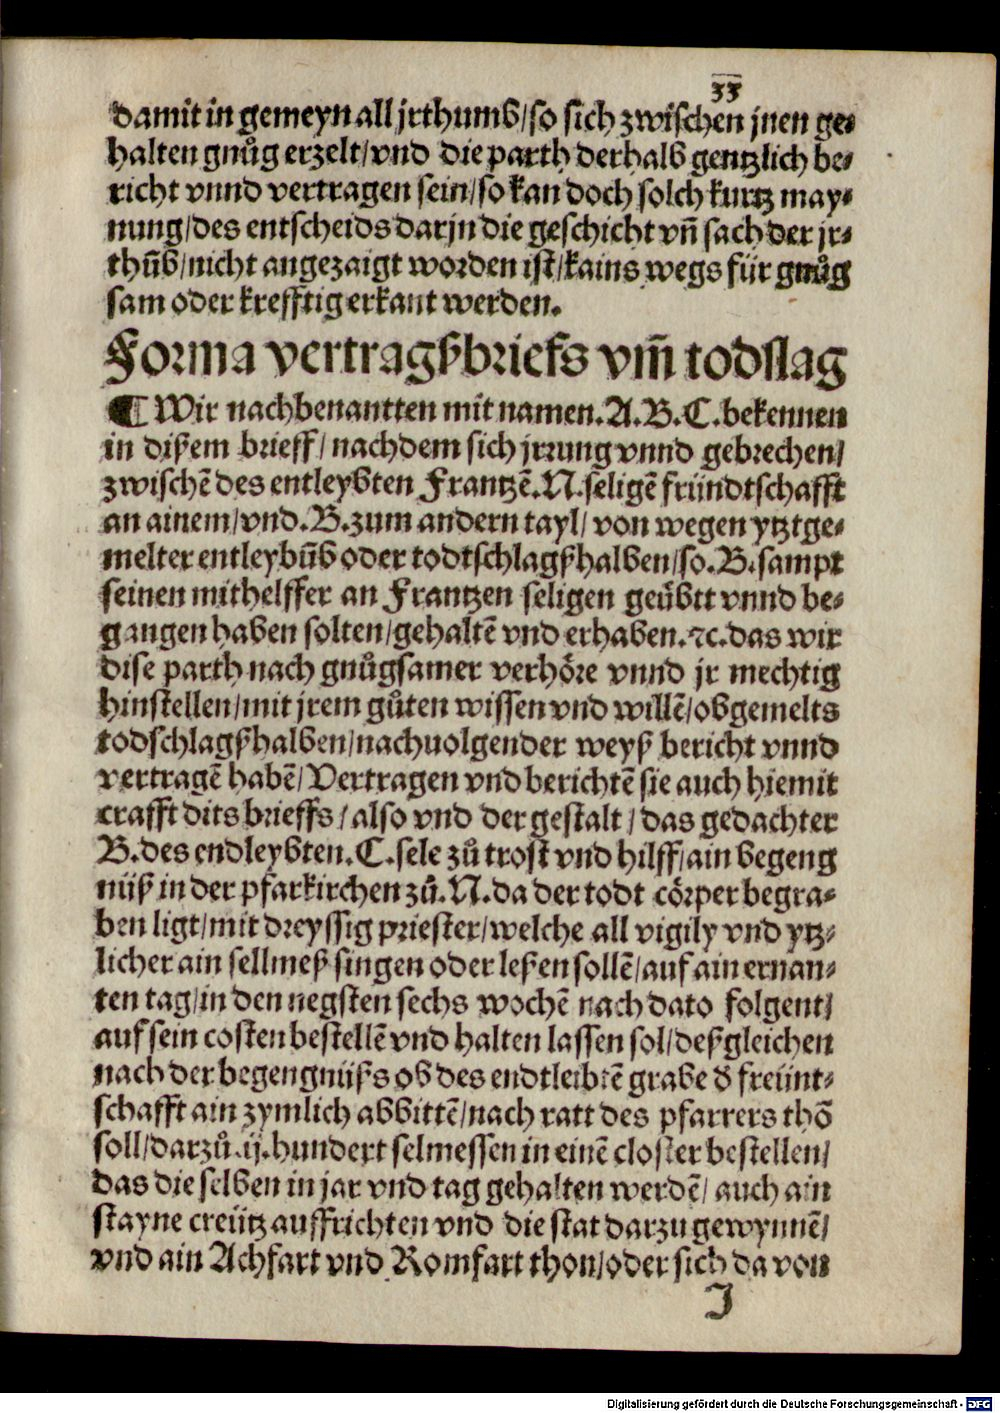 33
damit in gemeyn all jrthumb/so sich zwischen jnen ge⸗
halten gnůg erzelt/vnd die parth derhalb gentzlich be⸗
richt vnnd vertragen sein/so kan doch solch kurtz may⸗
nung/des entscheids darjn die geschicht vñ sach der jr⸗
thũb/nicht angezaigt worden ist/kains wegs für gnůg
sam oder krefftig erkant werden.
Forma vertragßbriefs vm̃ todslag
¶ Wir nachbenantten mit namen.A.B.C.bekennen
in dißem brieff/nachdem sich jrrung vnnd gebrechen/
zwischẽ des entleybten Frantzẽ.N.seligẽ fründtschafft
an ainem/vnd.B.zum andern tayl/von wegen ytztge⸗
melter entleybũb oder todtschlagßhalben/so.B.sampt
seinen mithelffer an Frantzen seligen geübtt vnnd be⸗
gangen haben solten/gehaltẽ vnd erhaben.⁊c.das wir
dise parth nach gnůgsamer verhöre vnnd jr mechtig
hinstellen/mit jrem gůten wissen vnd willẽ/obgemelts
todschlagßhalben/nachuolgender weyß bericht vnnd
vertragẽ habẽ/Vertragen vnd berichtẽ sie auch hiemit
crafft dits brieffs/also vnd der gestalt/das gedachter
B.des endleybten.C.sele zů trost vnd hilff/ain begeng
nüß in der pfarkirchen zů.N.da der todt cörper begra⸗
ben ligt/mit dreyssig priester/welche all vigily vnd ytz⸗
licher ain sellmeß singen oder leßen sollẽ/auf ain ernan⸗
ten tag/in den negsten sechs wochẽ nach dato folgent/
auf sein costen bestellẽ vnd halten lassen sol/deßgleichen
nach der begengnüßs ob des endtleibtẽ grabe d̕ freünt⸗
schafft ain zymlich abbittẽ/nach ratt des pfarrers thõ
soll/darzů.ij.hundert selmessen in einẽ closter bestellen/
das die selben in jar vnd tag gehalten werdẽ/auch ain
stayne creütz auffrichten vnd die stat darzu gewynnẽ/
vnd ain Achfart vnd Romfart thon/oder sich da von
J
Digitalisierung gefördert durch die Deutsche Forschungsgemeinschaft - DFG